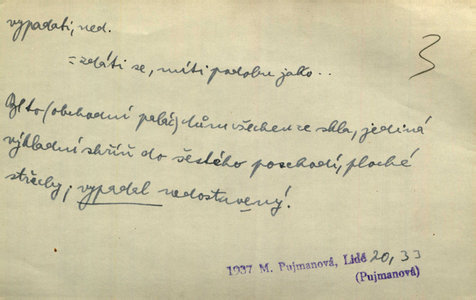 vypadati, ned.
3
= zdáti se, míti podobu jako..
Byl to (obchodní palác) dům všechen ze skla, jediná
výkladní skříň do šestého poschodí, ploché
střechy; vypadal nedostavený.
1937 M. Pujmanová, Lidé 20, 33
(Pujmanová)